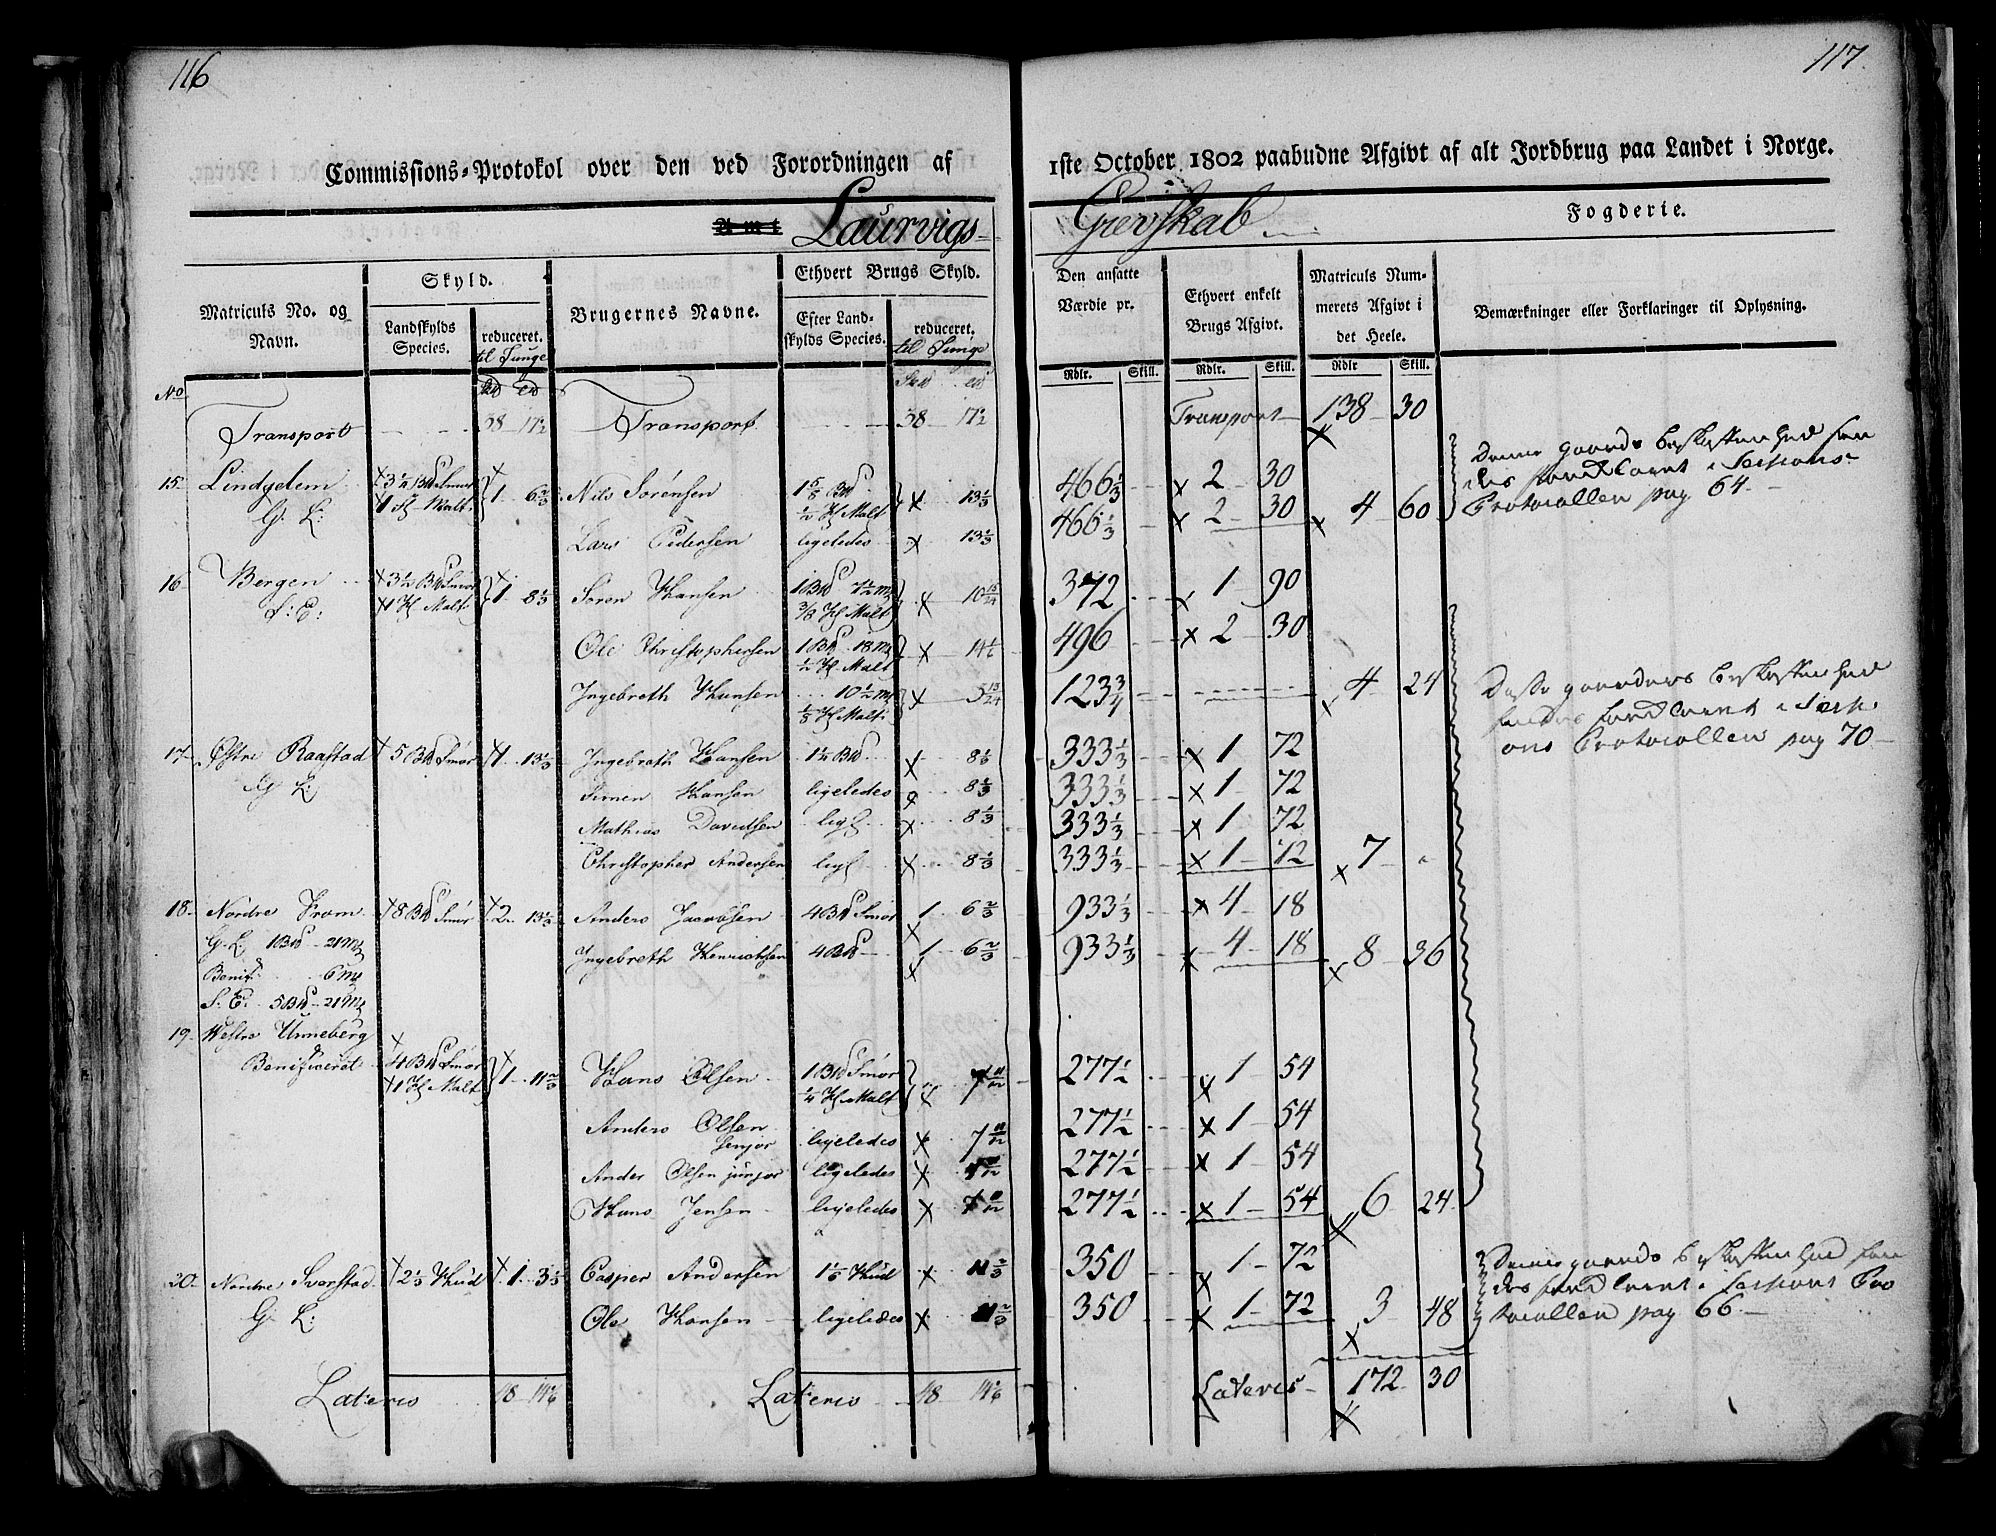 116
117.
Commissions-Protokol over den ved Forordningen af 1ste October 1802 paabudne Afgivt af alt Jordbrug paa Landet i Norge.
Amt Laurvigs- Grevskab Fogderie.
Matriculs No. og Navn.
Skyld.
Landskylds Species.
reduceret. til Tunge
Brugernes Navne.
Ethvert Brugs Skyld.
Efter Landskylds Species.
reduceret. til Tunge
Den ansatte Værdie pr.
Ethvert enkelt Brugs Afgivt.
Matriculs Nummerets Afgivt i det Heele.
Bemærkninger eller Forklaringer til Oplysning.
Rdlr. Skill. Rdlr. Skill. Rdlr Skill.
No
Transport 38 17½ Transport 38 17½ Transport 138 30
15 Lindgelem 1 6⅔ Nils Sørensen 13⅓ 466⅓ 2 30
G: L: ½ H Malt 466⅓ 2 30 4 60
Lars Pedersen ligeledes 13⅓
Protocollen pag 64
16 Bergen 3½ Bd Smør 1 8⅓ Søren Hansen 372 1 90
1 H Malt ⅜ H Malt
Ole Christophersen 1 Bd 18 mk 14⅙ 496 2 30
½ H Malt
Ingebreth Hansen 10½ mk 123¾ 4 24
⅛ H Malt
Protocollen pag 70
17 Østre Raastad 5 Bd Smør 1 13⅓ Ingebreth Hansen 1¼ Bd 8⅓ 333⅓ 1 72
G: L: Simen Hansen ligeledes 8⅓ 333⅓ 1 72
Mathias Davidsen lig 8⅓ 333⅓ 1 72
Christopher Andersen lig 8⅓ 333⅓ 1 72 7
18 Nordre Fram 8 Bd Smør 2 13⅓ Anders Jacobsen 4 Bd Smør 1 6⅔ 933⅓ 4 18
G. L. 1 Bd 21 mk Ingebreth Henrichsen 4 Bd 1 6⅔ 933⅓ 4 18 8 36
Benif: 6 mk
S: E: 5 Bd 21 mk
19 Westre Unneberg
Benificeret 4 Bd Smør 1 11⅔ Hans Olsen 1 Bd Smør 7 11/12 277½ 1 54
1 H Malt ¼ H Malt
Anders Olsen Senjor ligeledes 7 11/12 277½ 1 54
Ander Olsen junjor ligeledes 7 11/12 277½ 1 54
Hans Jensen ligeledes 7 11/12 277½ 1 54 6 24
20 Nordre Sverstad 2⅓ Hud 1 3⅓ Casper Andersen 1⅙ Hud 11⅔ 350 1 72
G: L: Ole Hansen ligeledes 11⅔ 350 1 72 3 48
Protocollen pag 66
Lateris 48 14⅙ Lateris 48 14⅙ Lateris 172 30